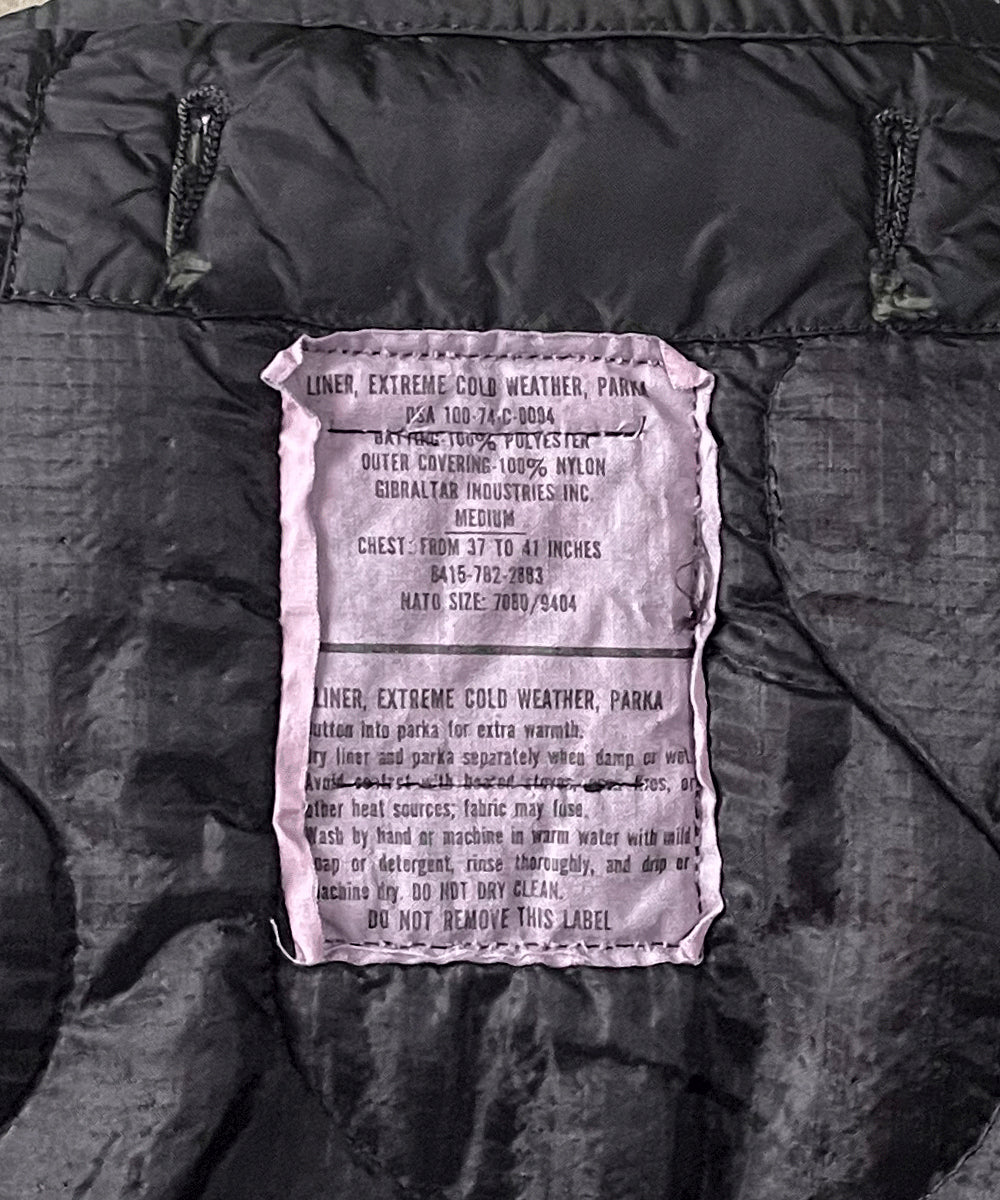 LINER, EXTREME COLD WEATHER, PARKA
DSA 100-74-C-0094
BATTING-100% POLYESTER
OUTER COVERING-100% NYLON
GIBRALTAR INDUSTRIES INC.
MEDIUM
CHEST: FROM 37 TO 41 INCHES
8415-782-2883
NATO SIZE: 7080/9404
LINER, EXTREME COLD WEATHER, PARKA
utton into parka for extra warmth.
ry liner and parka separately when damp or wet
Avoid contact with heated stoves, open fires, or
other heat sources; fabric may fuse.
Wash by hand or machine in warm water with mild
oap or detergent, rinse thoroughly, and drip or
achine dry. DO NOT DRY CLEAN.
DO NOT REMOVE THIS LABEL